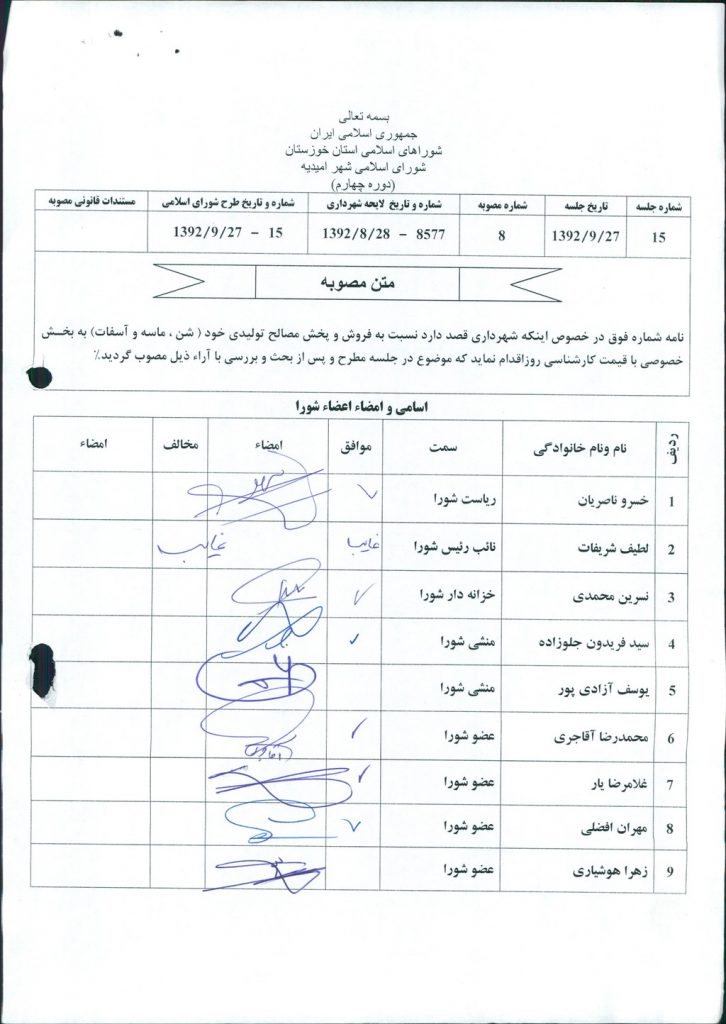 بسمه تعالی
جمهوری اسلامی ایران
شوراهای اسلامی استان خوزستان
شورای اسلامی شهر امیدیه
(دوره چهارم)
شماره جلسه تاریخ جلسه شماره مصوبه شماره و تاریخ لایحه شهرداری شماره و تاریخ طرح شورای اسلامی مستندات قانونی مصوبه
15 1392/9/27 8 8577 - 1392/8/28 15 - 1392/9/27
متن مصوبه
نامه شماره فوق در خصوص اینکه شهرداری قصد دارد نسبت به فروش و پخش مصالح تولیدی خود ( شن ، ماسه و آسفات) به بخش
خصوصی با قیمت کارشناسی روزاقدام نماید که موضوع در جلسه مطرح و پس از بحث و بررسی با آراء ذیل مصوب گردید٪
اسامی و امضاء اعضاء شورا
ردیف نام ونام خانوادگی سمت موافق امضاء مخالف امضاء
1 خسرو ناصریان ریاست شورا
2 لطیف شریفات نائب رئیس شورا غایب غایب
3 نسرین محمدی خزانه دار شورا
4 سید فریدون جلوزاده منشی شورا
5 یوسف آزادی پور منشی شورا
6 محمدرضا آقاجری عضو شورا
7 غلامرضا یار عضو شورا
8 مهران افضلی عضو شورا
9 زهرا هوشیاری عضو شورا